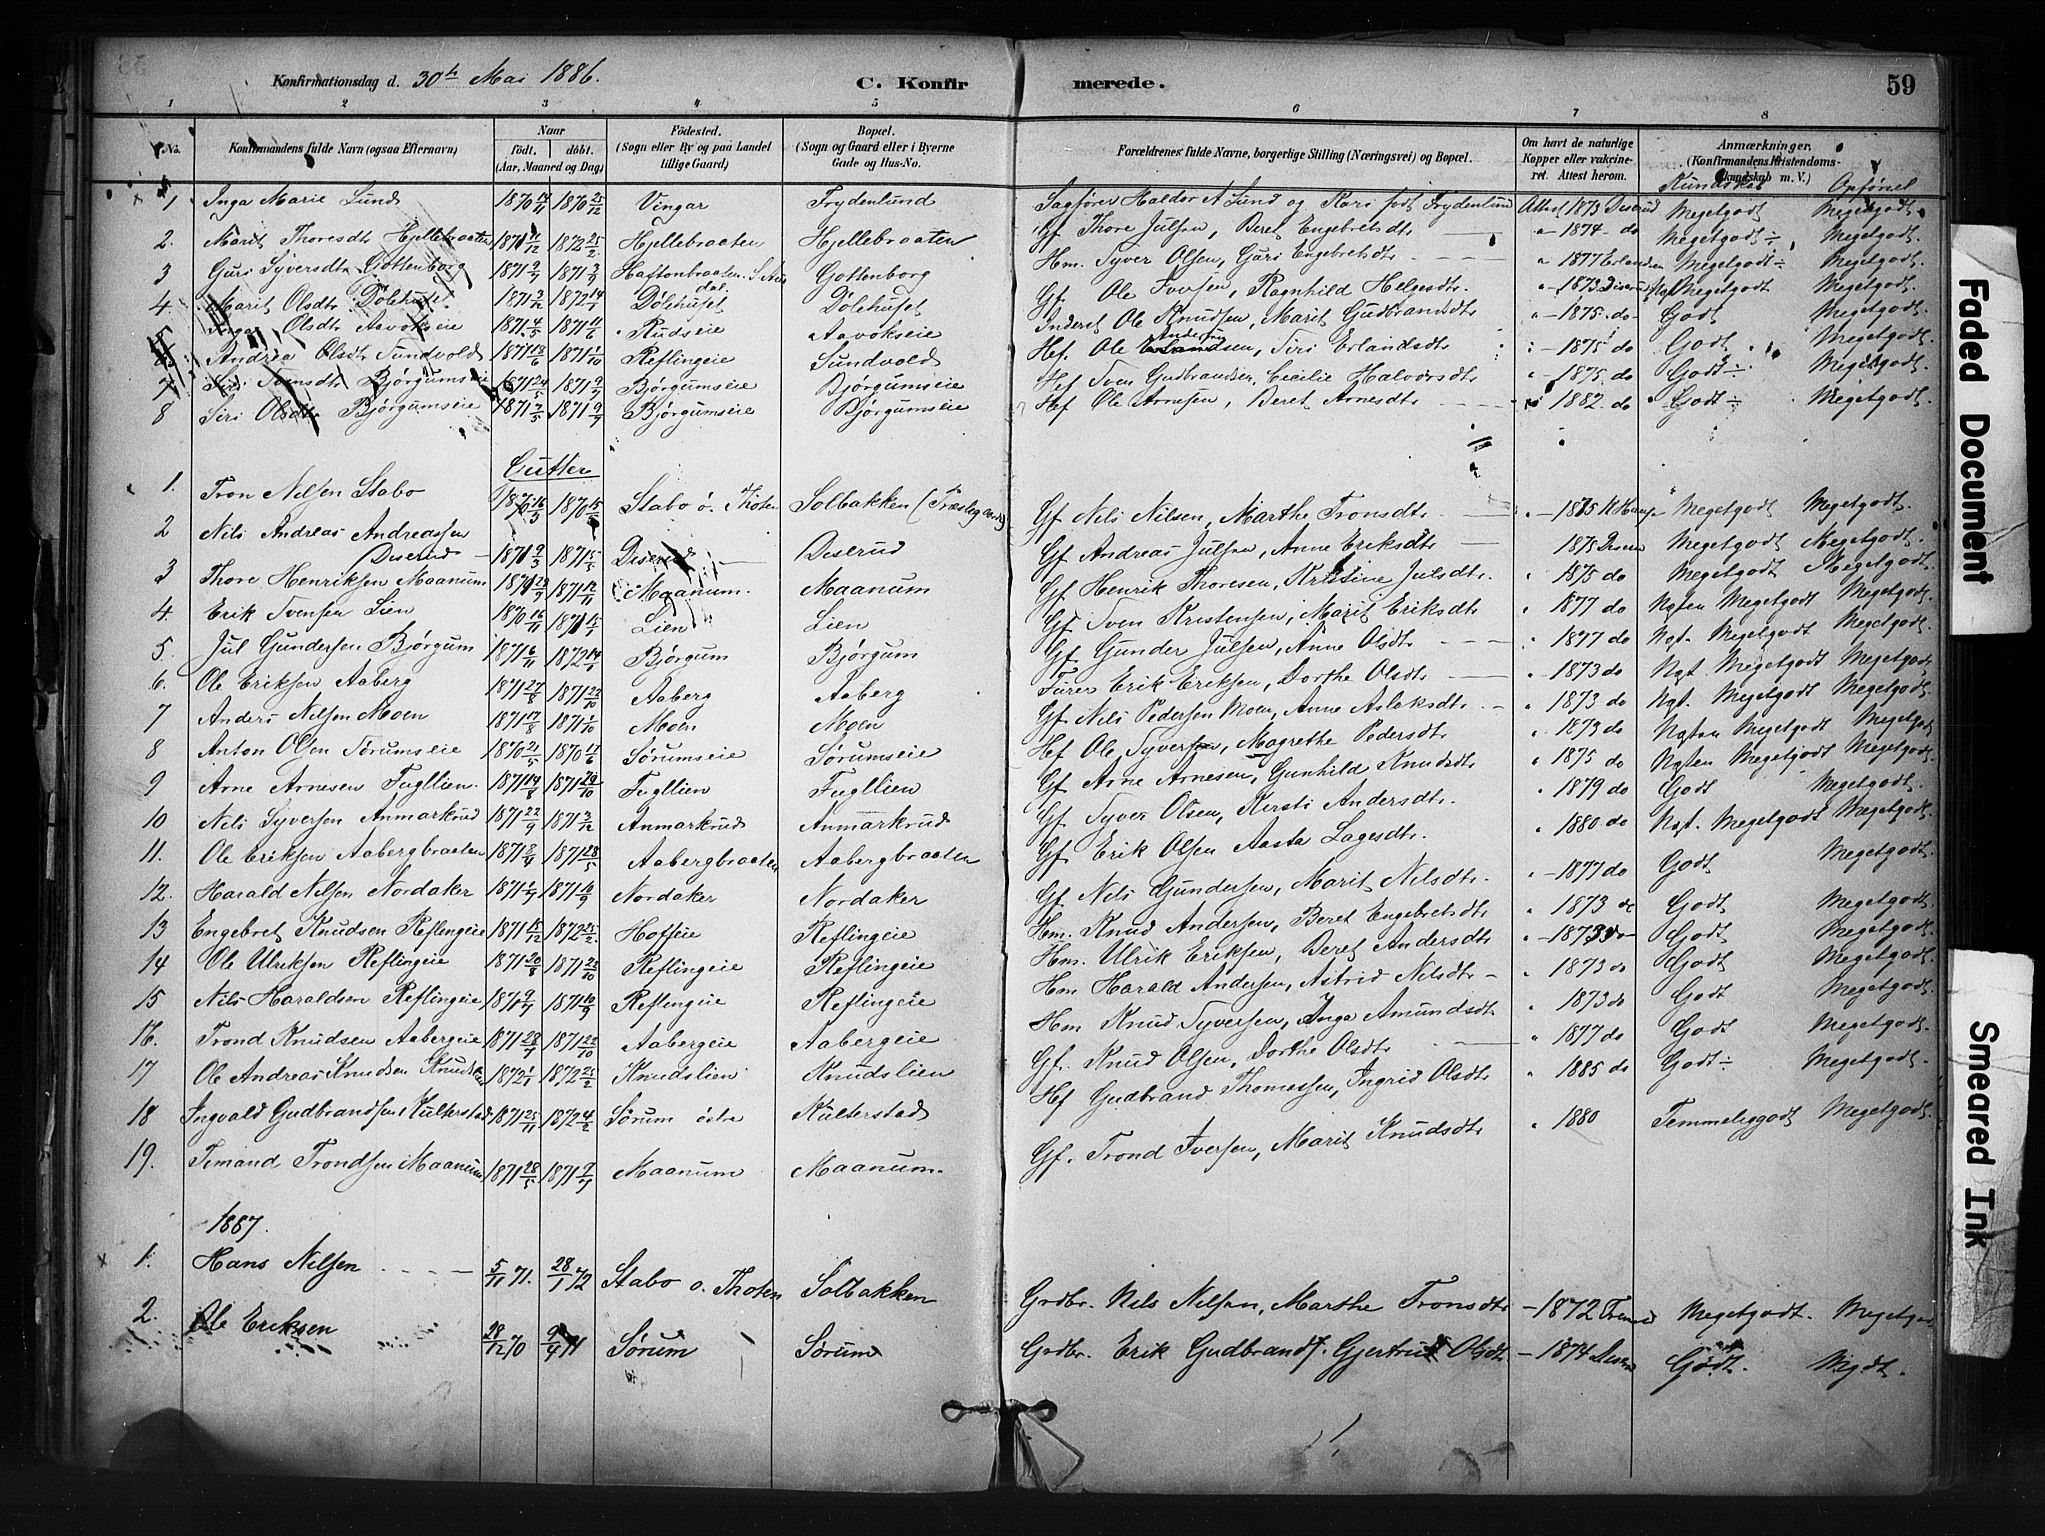 Konfirmationsdag d. 30th Mai 1886. C. Konfir merede. 59
1 2 3 4 5 6 7 8
No. Konfirmandens fulde Navn (ogsaa Efternavn) Naar født, døbt. (Aar, Maaned og Dag) Födested. (Sogn eller By og paa Landet tillige Gaard) Bopæl. (Sogn og Gaard eller i Byerne Gade og Hus-No. Forældrenes fulde Navne, borgerlige Stilling (Næringsvei) og Bopæl. Om havt de naturlige Kopper eller vaccineret. Attest herom. Anmærkninger. (Konfirmandens Kristendomskundskab m. V.)
Kundskab Opførsel
1 Inga Marie Lund 1870 14/11 1870 25/12 Vingar Frydenlund Sagfører Haldor A Lund og Kari født Frydenlund Attest 1873 Diserud Megetgodt Megetgodt.
2. Marit Thoresdtr Hjellebraaten 1871 11/12 1872 25/2 Hjellebraaten Hjellebraaten Gf Thore Julsen, Beret Engebretsdtr " 1874 do Megetgodt ÷ Megetgodt.
3 Guri Syversdtr Gottenborg 1871 9/7 1871 3/9 Gottenborg Hm. Syver Olsen, Guri Engebretsdtr " 1877 Megetgodt ÷ Megetgodt.
4. Marit Olsdtr Dölehuset 1871 3/12 1872 14/1 Dölehuset Dölehuset Gf Ole Iversen, Ragnhild Helgesdtr. " 1873 Diserud Ngt Megetgodt Megetgodt.
5 Inga Olsdtr Aavokseie 1871 4/5 1871 11/6 Rudseie Aavokseie Inderst Ole Knudsen, Marit Gudbrandsdtr " 1875 do Godt Megetgodt.
6 Andrea Olsdtr Sundvold 1871 18/6 1871 1/10 Reflingeie Sundvold Hef. Ole Andersen, Siri Erlandsdtr " 1875 do Godt Megetgodt.
7 Siri Svensdtr Bjørgumseie 1871 24/5 1871 9/7 Bjørgumseie Bjørgumseie Hef Sven Gudbrandsen, Cecilie Halvorsdtr " 1875 do Godt ÷ Megetgodt.
8 Siri Olsdtr Bjørgumseie 1871 7/5 1871 9/7 Bjørgumseie Bjørgumseie Hef Ole Arnesen, Beret Arnesdtr " 1882 do Godt ÷ Megetgodt.
Gutter
1. Tron Nilsen Stabo 1870 16/3 1870 15/5 Stabo ö. Thoten Solbakken Gf Nils Nilsen, Marthe Tronsdtr " 1875 Megetgodt Megetgodt.
2 Nils Andreas Andreassen
Diserud 1871 9/3 1871 15/5 Diserud Diserud Gf Andreas Julsen, Anne Eriksdtr 1875 Diserud Megetgodt Megetgodt.
3 Thore Henriksen Maanum 1871 29/9 1871 12/11 Maanum. Maanum Gf Henrik Thoresen, Kristine Julsdtr. " 1875 do Megetgodt Megetgodt.
4. Erik Svensen Lien 1870 16/11 1871 15/1 Lien Lien Gf Sven Kristensen, Marit Eriksdtr " 1877 do Ngten Megetgodt Megetgodt.
5. Jul Gundersen Bjørgum 1871 6/11 1872 14/1 Bjørgum Bjørgum Gf Gunder Julsen, Anne Olsdtr " 1877 do Ngt. Megetgodt Megetgodt.
6. Ole Eriksen Aaberg 1871 27/8 1871 22/10 Aaberg Aaberg Furer Erik Eriksen, Dorthe Olsdtr " 1873 do Ngt. Megetgodt Megetgodt.
7 Anders Nilsen Moen 1871 17/8 1871 1/10 Moen Moen Gf. Nils Pedersen Moen, Anne Aslaksdtr. " 1873 do Ngt. Megetgodt Megetgodt.
8 Anton Olsen Sørumseie 1870 21/5 1870 12/6 Sørumseie Sørumseie Hef Ole Syversen, Magrethe Pedersdtr " 1873 do Ngten Megetgodt Megetgodt
9 Arne Arnesen Fugllien. 1871 14/8 1871 29/10 Fugllien Fugllien Gf Arne Arnesen, Gunhild Knudsdtr " 1875 do Ngten Megetgodt Megetgodt.
10 Nils Syversen Anmarkrud 1871 22/9 1871 3/12 Anmarkrud Anmarkrud Gf Syver Olsen, Kersti Andersdtr. " 1879 do Godt Megetgodt.
11. Ole Eriksen Aabergbraaten 1871 8/4 1871 28/5 Aabergbraaten Aabergbraaten Gf. Erik Olsen Aasta Lagesdtr. " 1880 do Ngt. Megetgodt Megetgodt.
12. Harald Nilsen Nordaker 1871 1/7 1871 10/9 Nordaker Nordaker Gf Nils Gundersen, Marit Nilsdtr. " 1877 do Godt Megetgodt.
13 Engebret Knudsen Reflingeie 1871 15/12 1872 25/2 Hoffeie Reflingeie Hm. Knud Andersen, Beret Engebretsdtr " 1873 do Godt Megetgodt.
14 Ole Ulriksen Reflingeie 1871 20/8 1871 22/10 Reflingeie Reflingeie Hm. Ulrik Eriksen, Beret Andersdtr " 1873 do Godt Megetgodt.
15 Nils Haraldsen Reflingeie 1871 9/7 1871 10/9 Reflingeie Reflingeie Hm Harald Andersen, Astrid Nilsdtr " 1873 do Godt Megetgodt.
16. Trond Knudsen Aabergeie 1871 28/7 1871 22/10 Aabergeie Aabergeie Hm Knud Syversen, Inga Amundsdtr " 1873 do Godt Megetgodt.
17 Ole Andreas Knudsen Knudslien 1872 1/1 1872 25/2 Knudslien Knudslien Gf. Knud Olsen, Dorthe Olsdtr " 1877 do Godt Megetgodt.
18 Ingvald Gudbrandsen Kulterstad 1871 25/11 1872 4/2 Sørum östre Kulterstad Hf Gudbrand Thomassen, Ingrid Olsdtr " 1885 do Godt ÷ Megetgodt.
19. Simand Trondsen Maanum 1871 28/5 1871 7/7 Maanum Maanum. Gf. Trond Iversen, Marit Knudsdtr " 1880 Temmeliggodt Megetgodt.
1887.
1. Hans Nilsen 5/11 71. 28/1 72 Stabo ö. Thoten Solbakken Grdbr. Nils Nilsen, Marthe Tronsdtr 1872 Megetgodt. Megetgodt
2. Ole Eriksen 28/12 70 9/4 71 Sørum Sørum Grdbr. Erik Gudbrands. Gjertrud Olsdtr 1874 Diserud Godt. Mgdt.
Faded Document
Smeared Ink